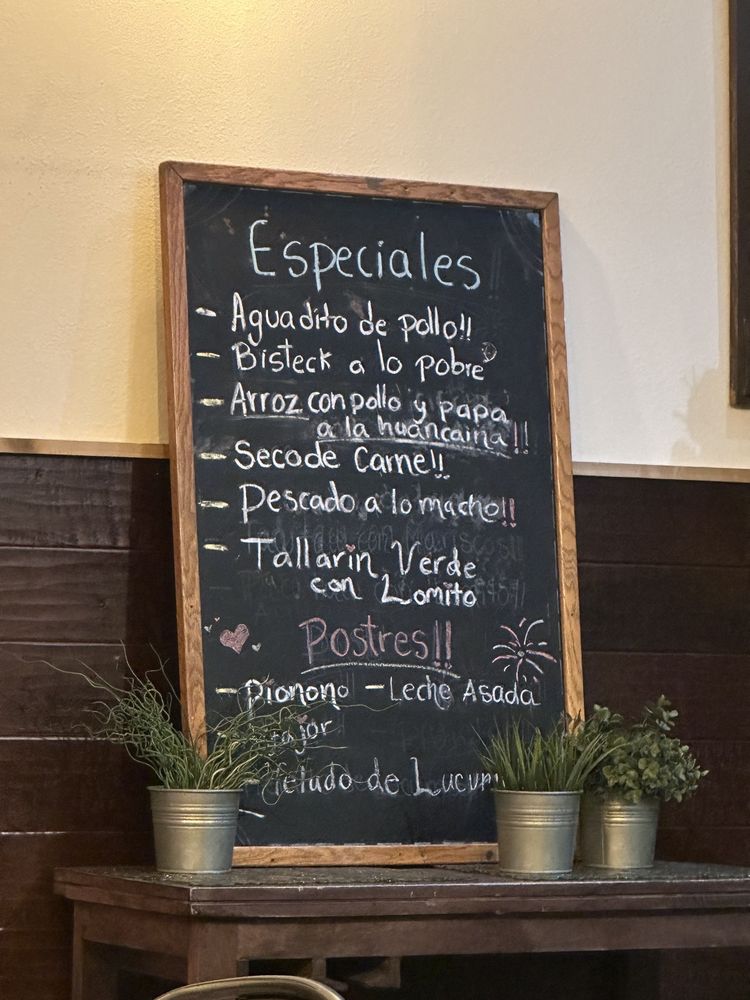 Especiales
- Aguadito de pollo!!
- Bisteck a lo pobre
- Arroz con pollo y papa
a la huancaina!!
- Seco de Carne!!
- Pescado a lo macho!!
- Tallarin Verde
con Lomito
Postres!!
- Pionono - Leche Asada
de